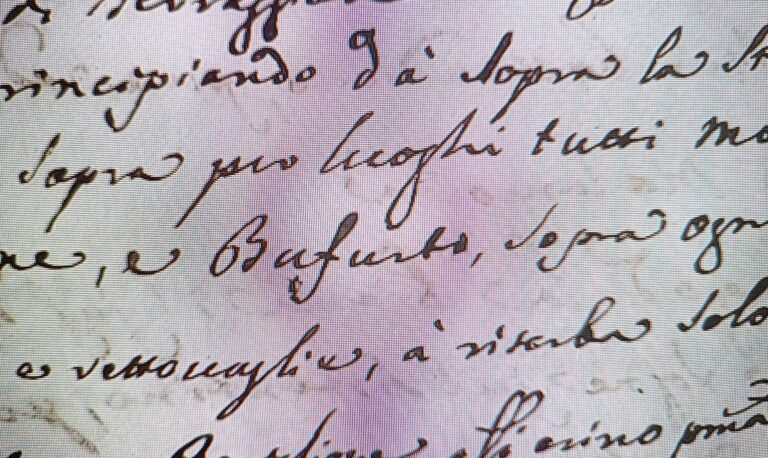 di
rincipiando dà sopra la St
sopra per luoghi tutti mo
ne, e Bufurto, sopra ogn
e vettovaglie, à riserba solo
pma